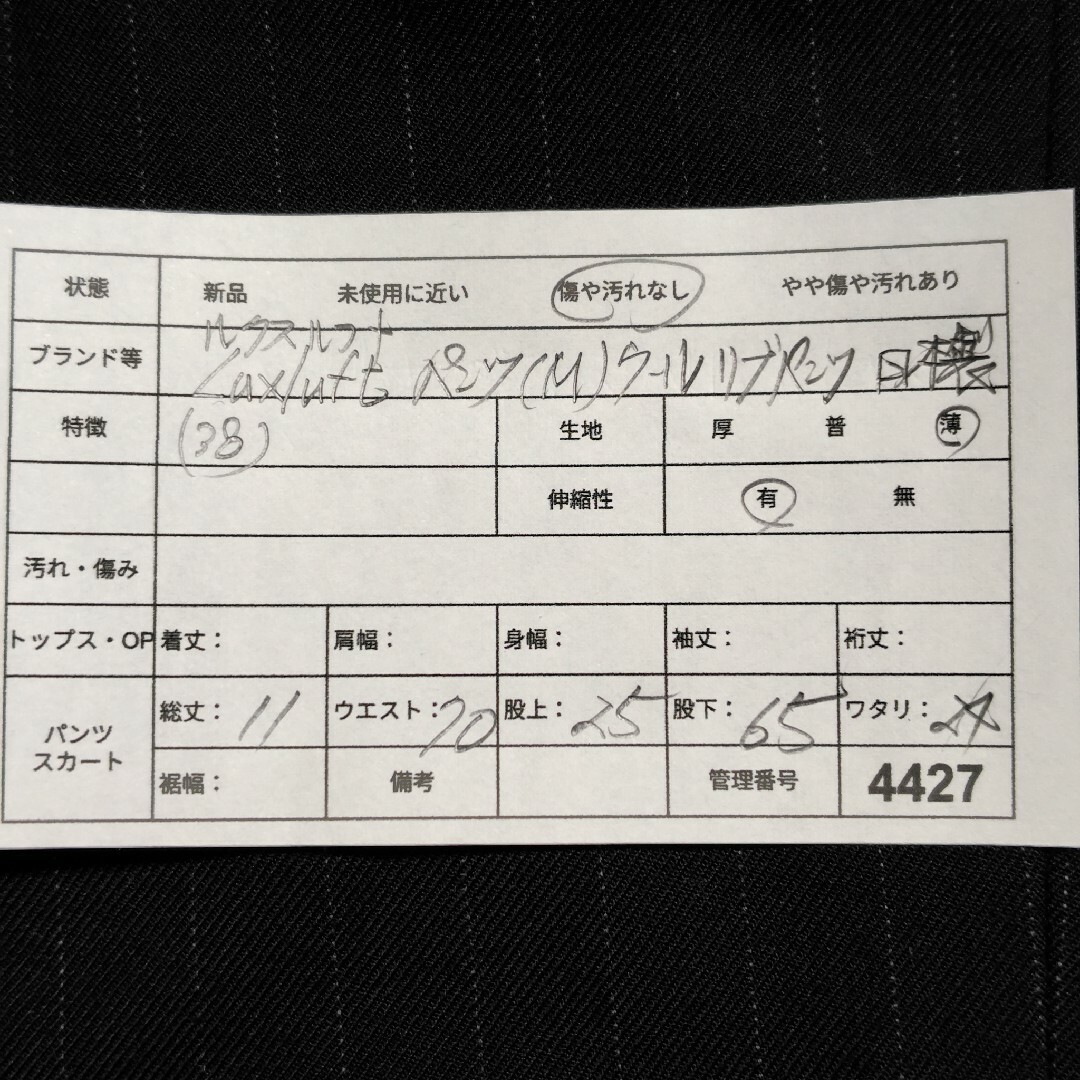 状態 新品 未使用に近い 傷や汚れなし やや傷や汚れあり
ルクスルフト
ブランド等 Luxluft パンツ(M)ウールリブパンツ 日本製
特徴 (38) 生地 厚 普 薄
伸縮性 有 無
汚れ・傷み
トップス・OP 着丈: 肩幅: 身幅: 袖丈: 裄丈:
パンツ
スカート
総丈: ウエスト:70 股上:25 股下:65 ワタリ:
裾幅: 備考 管理番号 4427